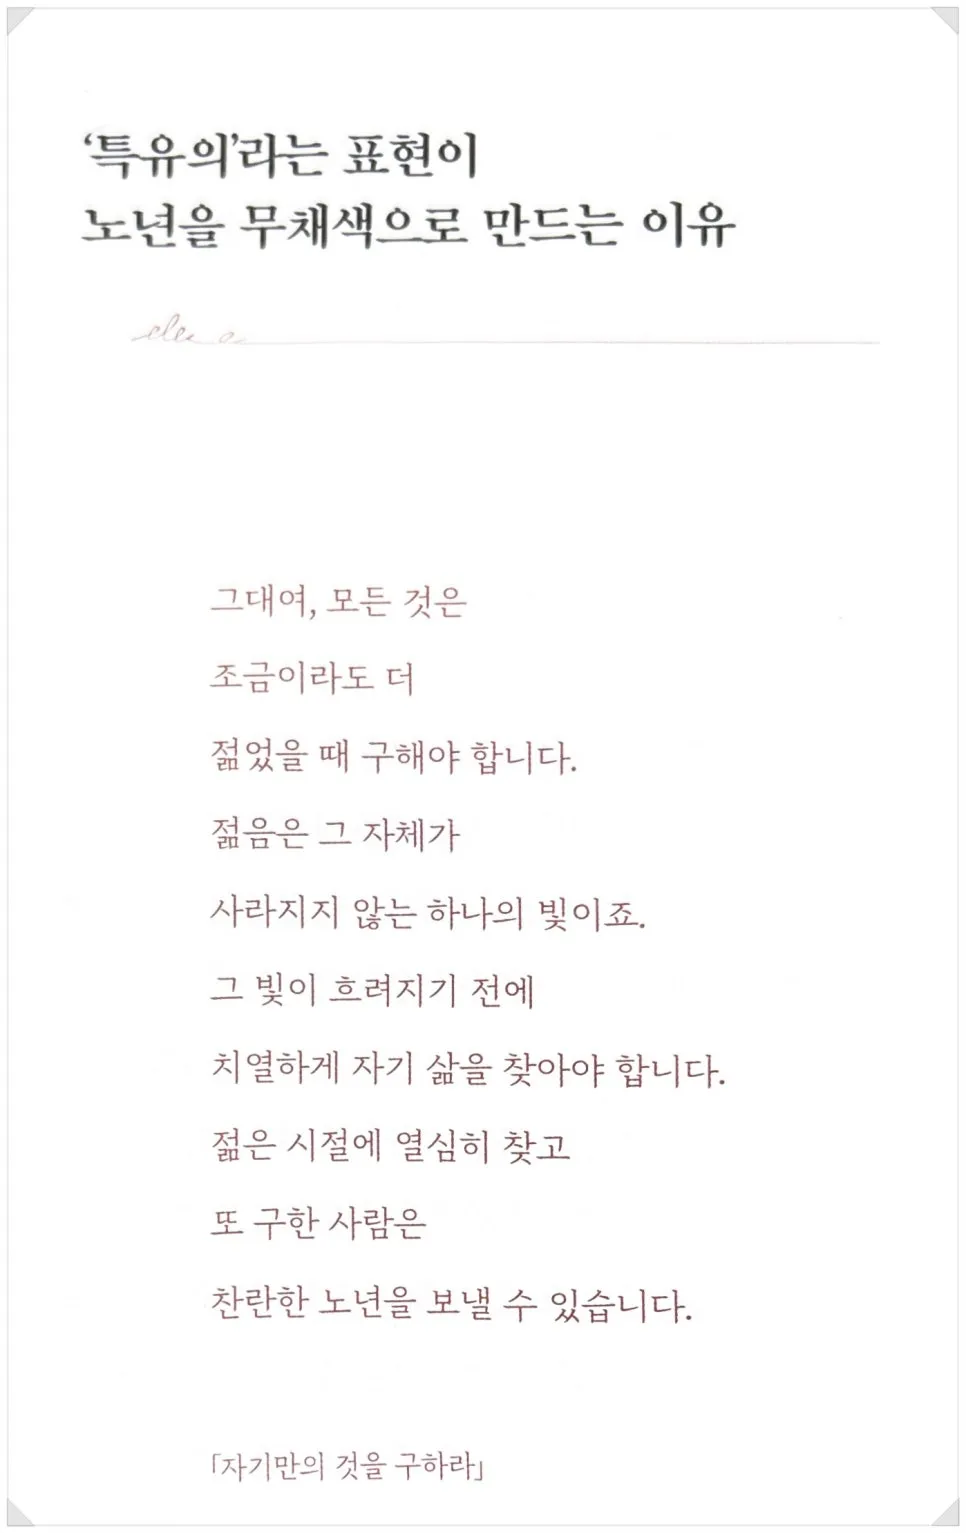 ‘특유의’라는 표현이
노년을 무채색으로 만드는 이유
그대여, 모든 것은
조금이라도 더
젊었을 때 구해야 합니다.
젊음은 그 자체가
사라지지 않는 하나의 빛이죠.
그 빛이 흐려지기 전에
치열하게 자기 삶을 찾아야 합니다.
젊은 시절에 열심히 찾고
또 구한 사람은
찬란한 노년을 보낼 수 있습니다.
「자기만의 것을 구하라」